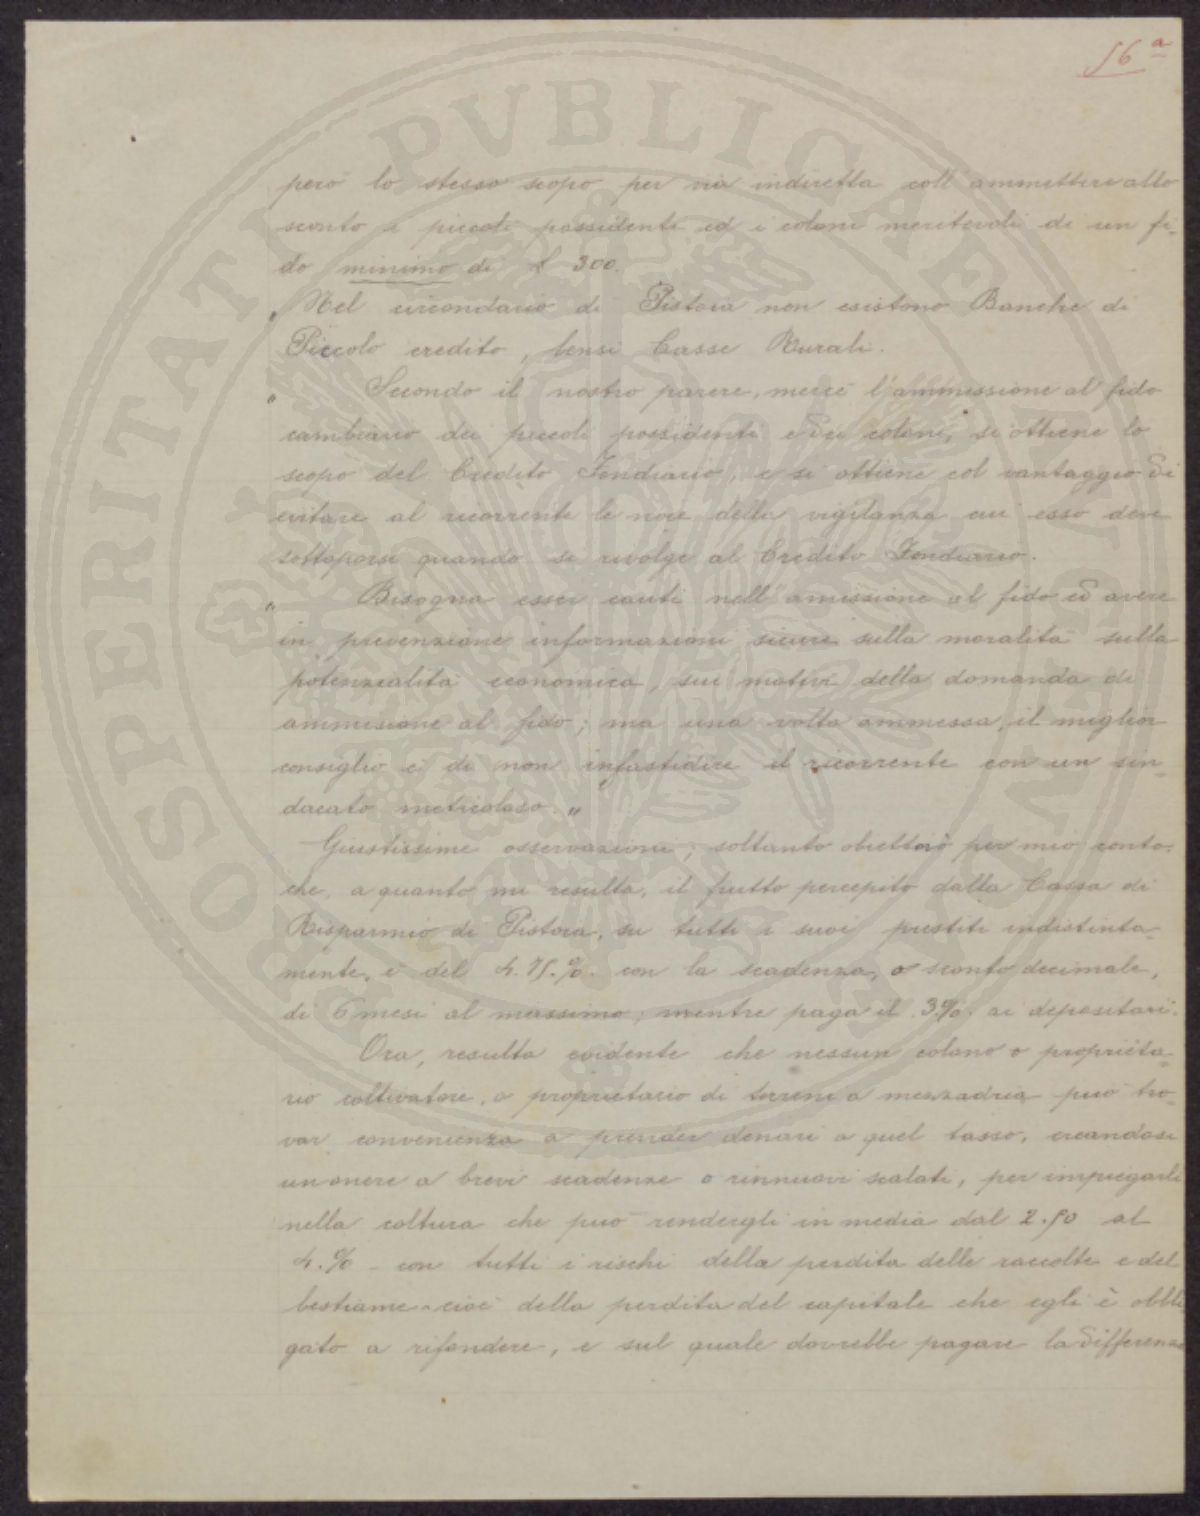 56ª
però lo stesso scopo per via indiretta coll'ammettere allo
sconto i piccoli possidenti ed i coloni meritevoli di un fi-
do minimo di £ 300.
„ Nel circondario di Pistoia non esistono Banche di
Piccolo credito, bensì Casse Rurali.
„ Secondo il nostro parere, mercè l'ammissione al fido
cambiario dei piccoli possidenti e dei coloni, si ottiene lo
scopo del Credito Fondiario, e si ottiene col vantaggio di
evitare al ricorrente le noie della vigilanza cui esso deve
sottoporsi quando si rivolge al Credito Fondiario.
„ Bisogna esser cauti nell'amissione al fido ed avere
in prevenzione informazioni sicure sulla moralità sulla
potenzialità economica, sui motivi della domanda di
ammisione al fido; ma una volta ammessa, il miglior
consiglio è di non infastidire il ricorrente con un sin-
dacato meticoloso. „
Giustissime osservazioni; soltanto obietterò per mio conto.
che, a quanto mi resulta, il frutto percepito dalla Cassa di
Risparmio di Pistoia, su tutti i suoi prestiti indistinta-
mente, è del 4.75.%. con la scadenza, o sconto decimale,
di 6 mesi al massimo; mentre paga il 3%. ai depositari.
Ora, resulta evidente che nessun colono o proprieta-
rio coltivatore, o proprietario di terreni a mezzadria può tro-
var convenienza a prender denari a quel tasso, creandosi
un onere a brevi scadenze o rinnuovi scalati, per impiegarli
nella coltura che può rendergli in media dal 2.50 al
4.% - con tutti i rischi della perdita delle raccolte e del
bestiame - cioè della perdita del capitale che egli è obbli
gato a rifondere, e sul quale dovrebbe pagare la differenza
SOSPERITATI PVBLICAE